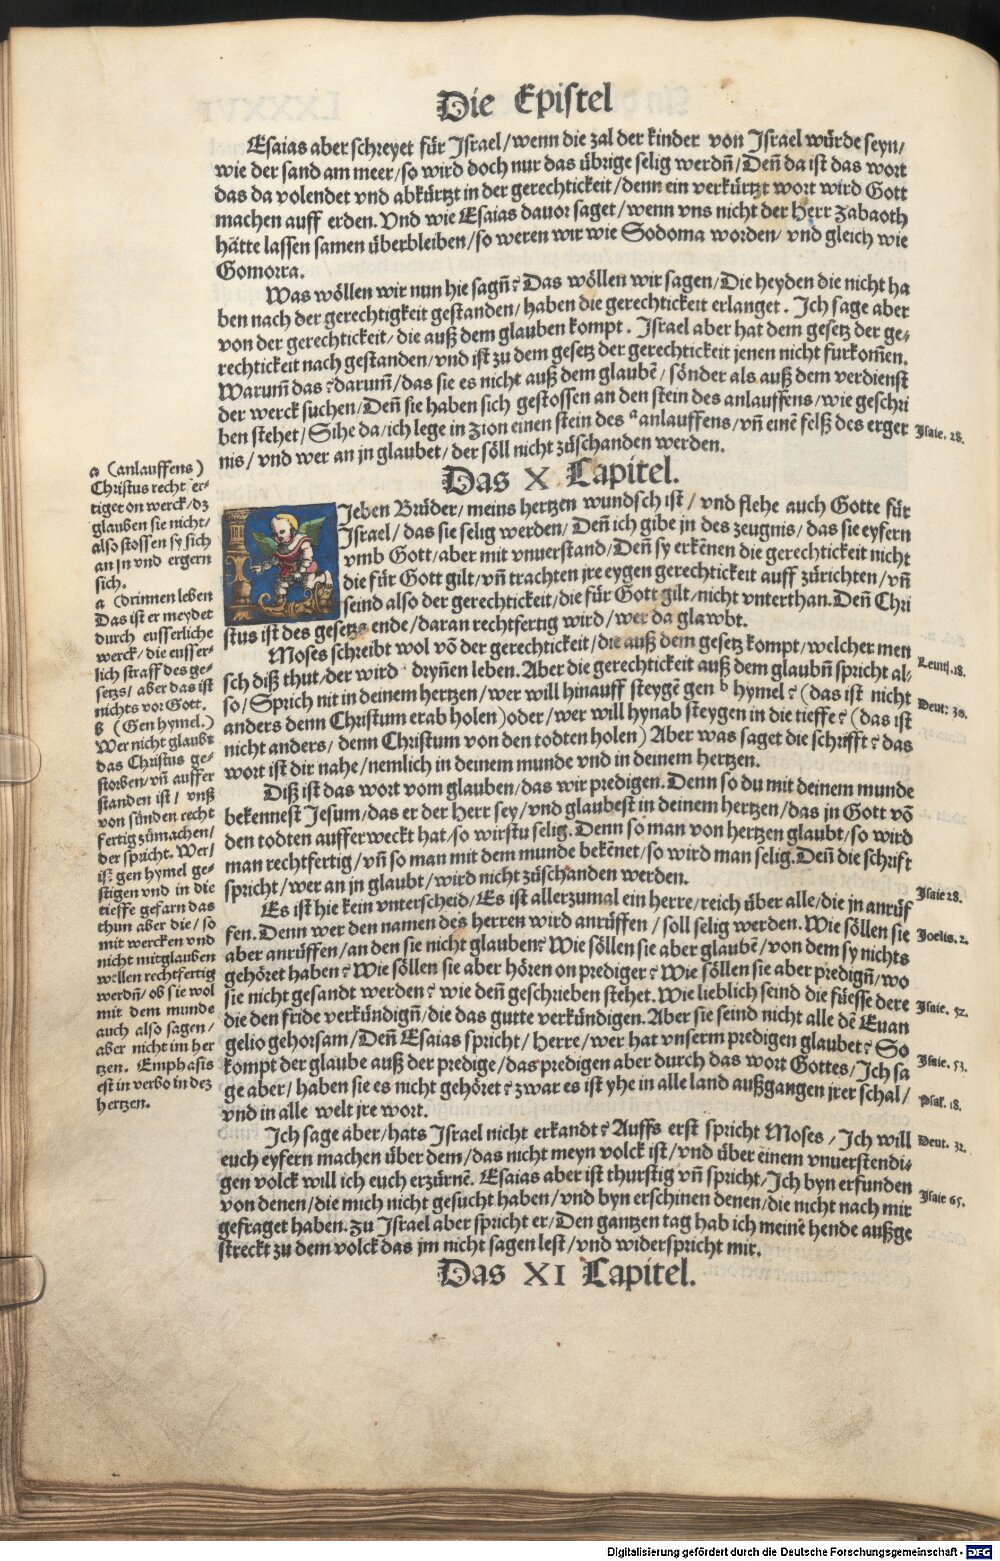 Die Epistel
Esaias aber schreyet für Israel/wenn die zal der kinder von Israel würde seyn/
wie der sand am meer/so wird doch nur das übrige selig werdn̄/Den̄ da ist das wort
das da volendet vnd abkürtzt in der gerechtickeit/denn ein verkürtzt wort wird Gott
machen auff erden. Vnd wie Esaias dauor saget/wenn vns nicht der Herr Zabaoth
hätte lassen samen überbleiben/so weren wir wie Sodoma worden/vnd gleich wie
Gomorra.
Was wöllen wir nun hie sagn̄? Das wöllen wir sagen/Die heyden die nicht ha
ben nach der gerechtigkeit gestanden/haben die gerechtickeit erlanget. Ich sage aber
von der gerechtickeit/die auß dem glauben kompt. Israel aber hat dem gesetz der ge-
rechtickeit nach gestanden/vnd ist zu dem gesetz der gerechtickeit jenen nicht furkom̄en.
Warum̄ das? darum̄/das sie es nicht auß dem glaubē/sönder als auß dem verdienst
der werck suchen/Den̄ sie haben sich gestossen an den stein des anlauffens/wie geschri
ben stehet/Sihe da/ich lege in Zion einen stein des a anlauffens/vn̄ einē felß des erger
nis/vnd wer an jn glaubet/der söll nicht züschanden werden.
Isaie. 28.
Das X Capitel.
Ieben Brüder/meins hertzen wundsch ist/vnd flehe auch Gotte für
Israel/das sie selig werden/Den̄ ich gibe jn des zeugnis/das sie eyfern
vmb Gott/aber mit vnuerstand/Den̄ sy erkēnen die gerechtickeit nicht
die für Gott gilt/vn̄ trachten jre eygen gerechtickeit auff zürichten/vn̄
seind also der gerechtickeit/die für Gott gilt/nicht vnterthan. Den̄ Chri
stus ist des gesetzs ende/daran rechtfertig wird/wer da glawbt.
Moses schreibt wol vō der gerechtickeit/die auß dem gesetz kompt/welcher men
sch diß thut/der wird drynen leben. Aber die gerechtickeit auß dem glaubn̄ spricht al-
so/Sprich nit in deinem hertzen/wer will hinauff steygē gen b hymel? (das ist nicht
anders denn Christum erab holen) oder/wer will hynab steygen in die tieffe? (das ist
nicht anders/denn Christum von den todten holen) Aber was saget die schrifft? das
wort ist dir nahe/nemlich in deinem munde vnd in deinem hertzen.
Leuiti. 18.
Deut. 30.
Diß ist das wort vom glauben/das wir predigen. Denn so du mit deinem munde
bekennest Jesum/das er der Herr sey/vnd glaubest in deinem hertzen/das jn Gott vō
den todten aufferweckt hat/so wirstu selig. Denn so man von hertzen glaubt/so wird
man rechtfertig/vn̄ so man mit dem munde bekēnet/so wird man selig. Den̄ die schrift
spricht/wer an jn glaubt/wird nicht züschanden werden.
Es ist hie kein vnterscheid/Es ist allerzumal ein herre/reich über alle/die jn anrüf
fen. Denn wer den namen des herren wird anrüffen/soll selig werden. Wie söllen sie
aber anrüffen/an den sie nicht glauben? Wie söllen sie aber glaubē/von dem sy nichts
gehöret haben? Wie söllen sie aber hören on prediger? Wie söllen sie aber predign̄/wo
sie nicht gesandt werden? wie den̄ geschrieben stehet. Wie lieblich seind die füesse dere
die den fride verkündign̄/die das gutte verkündigen. Aber sie seind nicht alle dē Euan
gelio gehorsam/Den̄ Esaias spricht/Herre/wer hat vnserm predigen glaubet? So
kompt der glaube auß der predige/das predigen aber durch das wort Gottes/Ich sa
ge aber/haben sie es nicht gehöret? zwar es ist yhe in alle land außgangen jrer schal/
vnd in alle welt jre wort.
Isaie 28.
Joelis. 2.
Isaie. 52.
Isaie. 53.
Psal. 18.
Ich sage aber/hats Israel nicht erkandt? Auffs erst spricht Moses/Ich will
euch eyfern machen über dem/das nicht meyn volck ist/vnd über einem vnuerstendi-
gen volck will ich euch erzürnē. Esaias aber ist thurstig vn̄ spricht/Ich byn erfunden
von denen/die mich nicht gesucht haben/vnd byn erschinen denen/die nicht nach mir
gefraget haben. Zu Israel aber spricht er/Den gantzen tag hab ich meinē hende außge
streckt zu dem volck das jm nicht sagen lest/vnd widerspricht mir.
Deut. 32.
Isaie 65.
Das XI Capitel.
a (anlauffens)
Christus recht fer-
tiget on werck/dz
glauben sie nicht/
also stossen sy sich
an jn vnd ergern
sich.
a (drinnen leben
Das ist er meydet
durch eusserliche
werck/die eusser-
lich straff des ge-
setzs/aber das ist
nichts vor Gott.
B (Gen hymel.)
Wer nicht glaubt
das Christus ge-
storben/vn̄ auffer
standen ist/vnß
von sünden recht
fertig zümachen/
der spricht. Wer/
ist gen hymel ge-
stigen vnd in die
tieffe gefarn das
thun aber die/so
mit wercken vnd
nicht mitglauben
wellen rechtfertig
werdn̄/ob sie wol
mit dem munde
auch also sagen/
aber nicht im her
tzen. Emphasis
est in verbo in dez
hertzen.
Digitalisierung gefördert durch die Deutsche Forschungsgemeinschaft - DFG